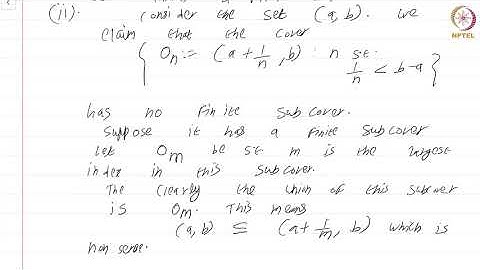 (ii). Consider the set (a, b). We
claim that the cover
{ On := (a + 1/n, b) : n s.t. 1/n < b-a }
has no finite subcover.
Suppose it has a finite subcover
Let Om be s.t. m is the largest
index in this subcover.
The clearly the union of this subcover
is Om. This means
(a, b) ⊆ (a + 1/m, b) which is
non sense.
NPTEL